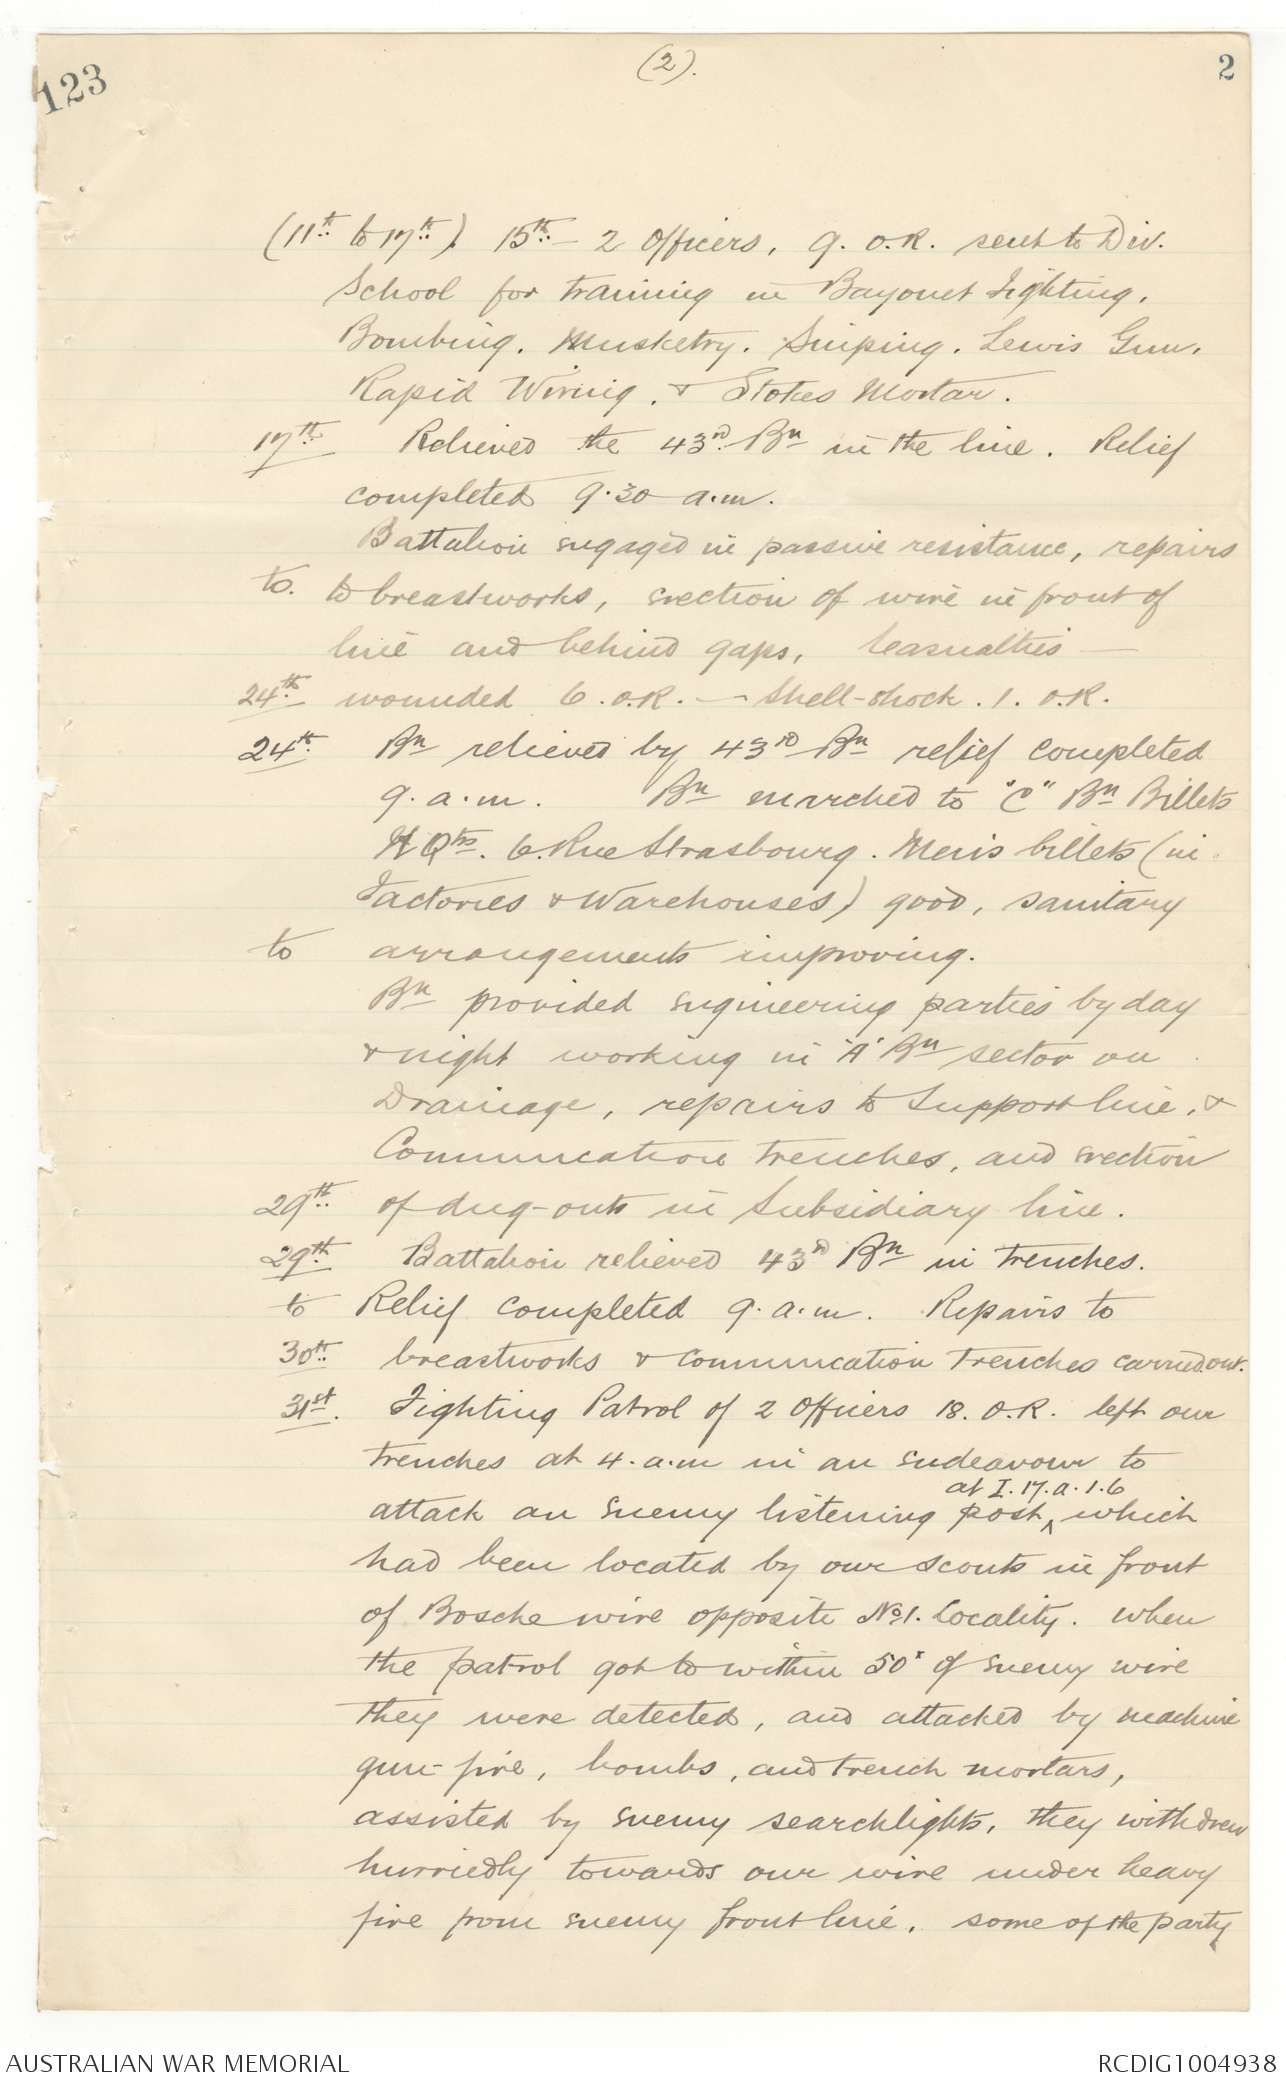 123
(2).
2
(11th to 17th). 15th - 2 Officers, 9. O.R. sent to Div.
School for training in Bayonet Fighting,
Bombing. Musketry. Sniping. Lewis Gun.
Rapid Wiring. & Stokes Mortar.
17th Relieved the 43rd Bn in the line. Relief
completed 9.30 a.m.
Battalion engaged in passive resistance, repairs
to. to breastworks, erection of wire in front of
line and behind gaps, Casualties —
24th wounded 6. O.R. — Shell-shock. 1. O.R.
24th Bn relieved by 43rd Bn relief completed
9. a.m. Bn marched to "C" Bn Billets
H Qtrs. 6. Rue Strasbourg. Men's billets (in
Factories & Warehouses) good, sanitary
to arrangements improving.
Bn provided engineering parties by day
& night working in 'A' Bn sector on
Drainage, repairs to Support line, &
Communication trenches, and erection
29th of dug-outs in Subsidiary line.
29th Battalion relieved 43rd Bn in trenches.
to Relief completed 9. a.m. Repairs to
30th breastworks & communication trenches carried out.
31st. Fighting Patrol of 2 Officers 18. O.R. left our
trenches at 4. a.m in an endeavour to
at I.17.a.1.6
attack an enemy listening post, which
had been located by our scouts in front
of Bosche wire opposite No. 1. Locality. When
the patrol got to within 50x of enemy wire
they were detected, and attacked by machine
gun-fire, bombs, and trench mortars,
assisted by enemy searchlights, they withdrew
hurriedly towards our wire under heavy
fire from enemy front line, some of the party
AUSTRALIAN WAR MEMORIAL
RCDIG1004938